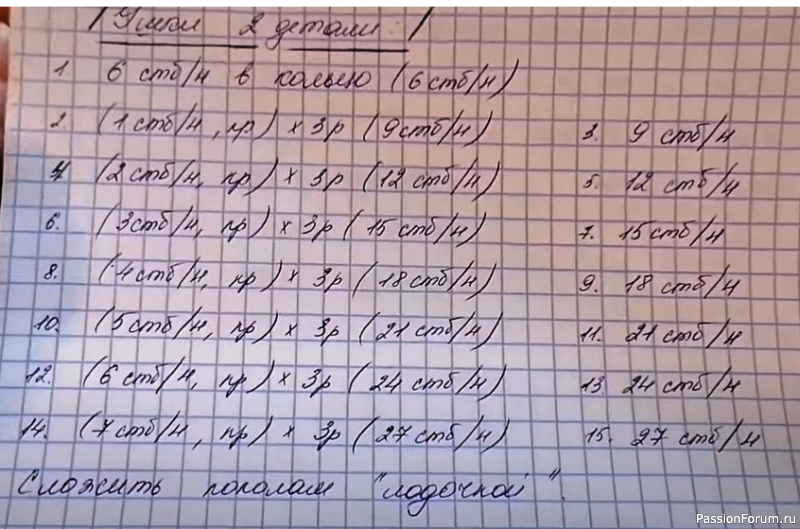 Ушки 2 детали:
1. 6 стб/н в кольцо (6 стб/н)
2. (1 стб/н, пр) х 3р (9 стб/н) 3. 9 стб/н
4. (2 стб/н, пр) х 3р (12 стб/н) 5. 12 стб/н
6. (3 стб/н, пр) х 3р (15 стб/н) 7. 15 стб/н
8. (4 стб/н, пр) х 3р (18 стб/н) 9. 18 стб/н
10. (5 стб/н, пр) х 3р (21 стб/н) 11. 21 стб/н
12. (6 стб/н, пр) х 3р (24 стб/н) 13. 24 стб/н
14. (7 стб/н, пр) х 3р (27 стб/н) 15. 27 стб/н
Сложить пополам "лодочкой".
PassionForum.ru